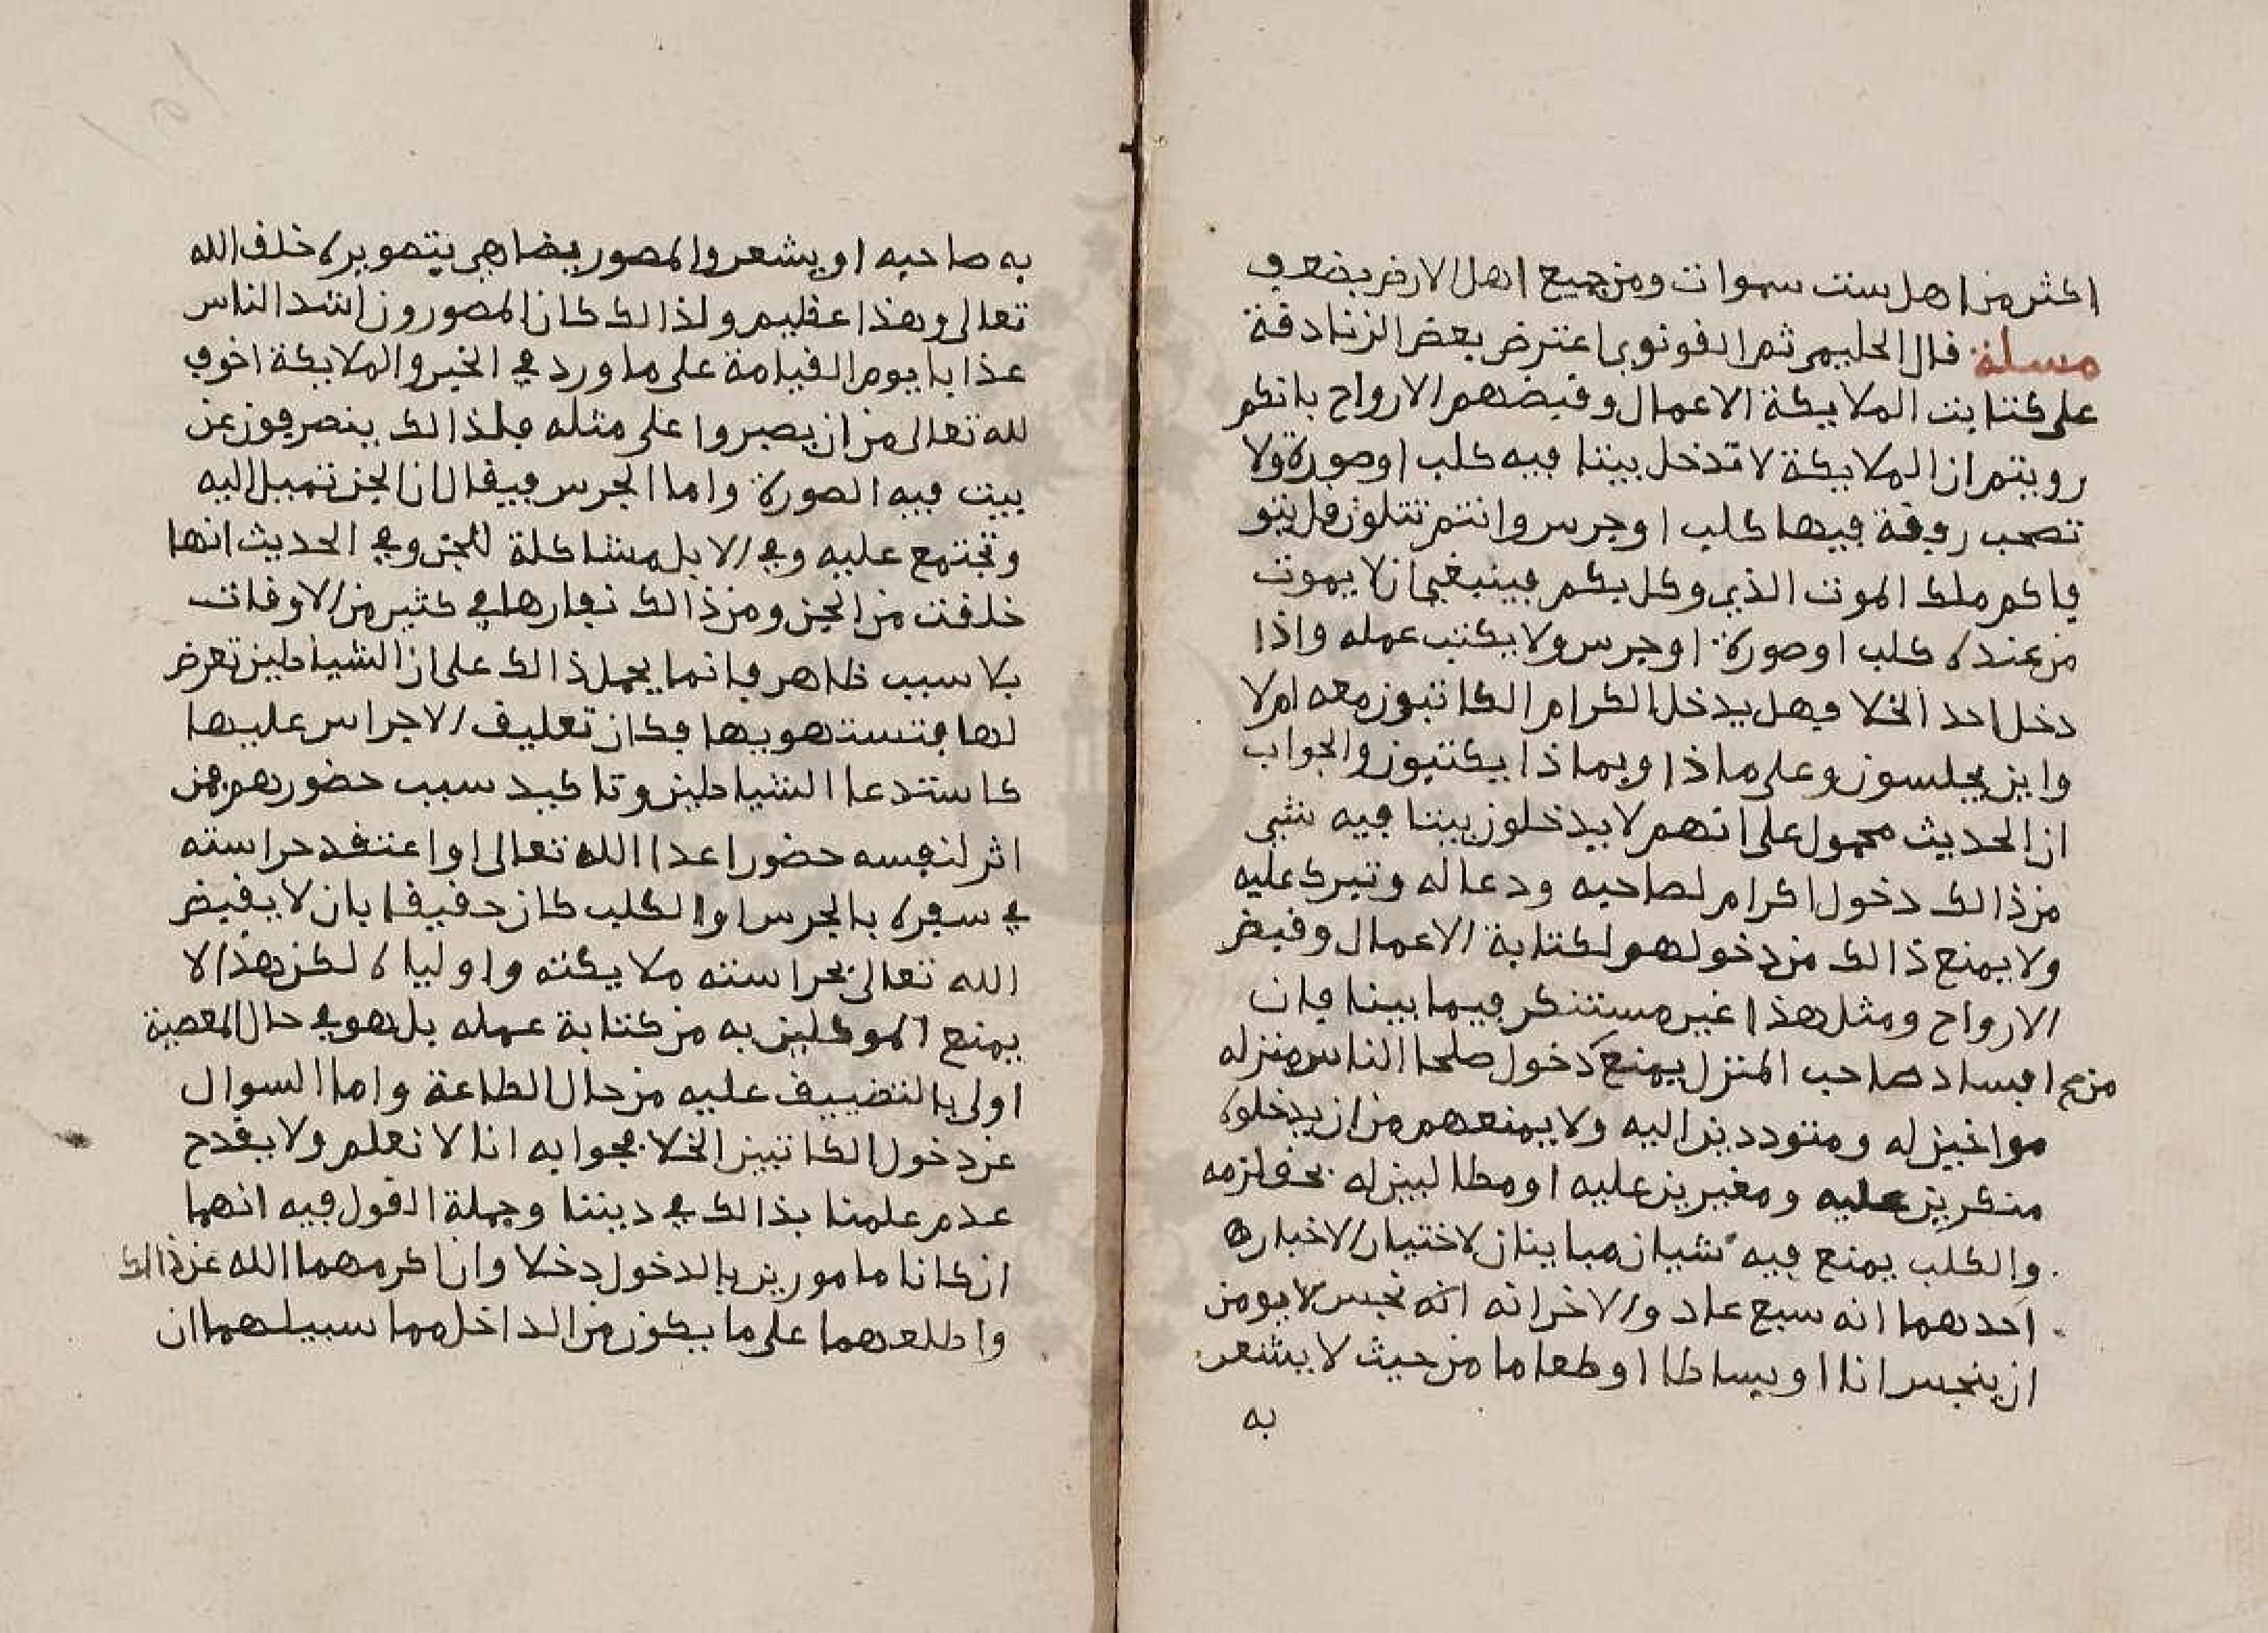 اكثر من اهل ست سموات ومن جميع اهل الارض بضعف
مسلة قال الحليمي ثم القونوي اعترض بعض الزنادقة
على كتابت الملايكة الاعمال وقبضهم الارواح بانكم
رويتم ان الملايكة لا تدخل بيتا فيه كلب اوصورة ولا
تصحب رفقة فيها كلب اوجرس وانتم تتلون قل يتو
فاكم ملك الموت الذي وكل بكم فينبغي ان لا يموت
من عنده كلب اوصورة اوجرس ولا يكتب عمله واذا
دخل احد الخلا فهل يدخل الكرام الكاتبون معه ام لا
واين يجلسون وعلى ماذا وبماذا يكتبون والجواب
ان الحديث محمول على انهم لا يدخلون بيتا فيه شي
من ذالك دخول اكرام لصاحبه ودعا له وتبرك عليه
ولا يمنع ذالك من دخولهم لكتابة الاعمال وقبض
الارواح ومثل هذا غير مستنكر فيما بيننا فان
افساد صاحب المنزل يمنع دخول صلحا الناس منزله
مواخين له ومتوددين اليه ولا يمنعهم من ان يدخلوه
منكرين عليه ومغيرين عليه اومطالبين له بحق لزمه
والكلب يمنع فيه شيان مباينان لاختيار الاخباره
احدهما انه سبع عاد والاخر انه نجس لا يومن
ان ينجس انا اوبساطا اوطعاما من حيث لا يشعر
به
به صاحبه اويشعر والمصور يضاهي بتصويره خلق الله
تعالى وهذا عظيم ولذالك كان المصورون اشد الناس
عذابا يوم القيامة على ما ورد في الخبر والملايكة اخوف
لله تعالى من ان يصبروا على مثله فلذالك ينصرفون عن
بيت فيه الصورة واما الجرس فيقال ان الجن تميل اليه
وتجتمع عليه وفي الابل مشاكلة للجن وفي الحديث انها
خلقت من الجن ومن ذالك نفارها في كثير من الاوقات
بلا سبب ظاهر فانما يحمل ذالك على ان الشياطين تعرض
لها فتستهويها فكان تعليق الاجراس عليها
كاستدعا الشياطين وتاكيد سبب حضورهم فمن
اثر لنفسه حضور اعدا الله تعالى اواعتقد حراسته
في سفره بالجرس اوالكلب كان حقيقا بان لا يقيض
الله تعالى بحراسته ملايكته واولياه لكن هذا لا
يمنع الموكلين به من كتابة عمله بل هو في حال المعصية
اولى بالتضييق عليه من حال الطاعة واما السوال
عن دخول الكاتبين الخلا فجوابه انا لا نعلم ولا يقدح
عدم علمنا بذالك في ديننا وجملة القول فيه انهما
ان كانا مامورين بالدخول دخلا وان اكرمهما الله عن ذالك
واطلعهما على ما يكون من الداخل مما سبيلهما ان